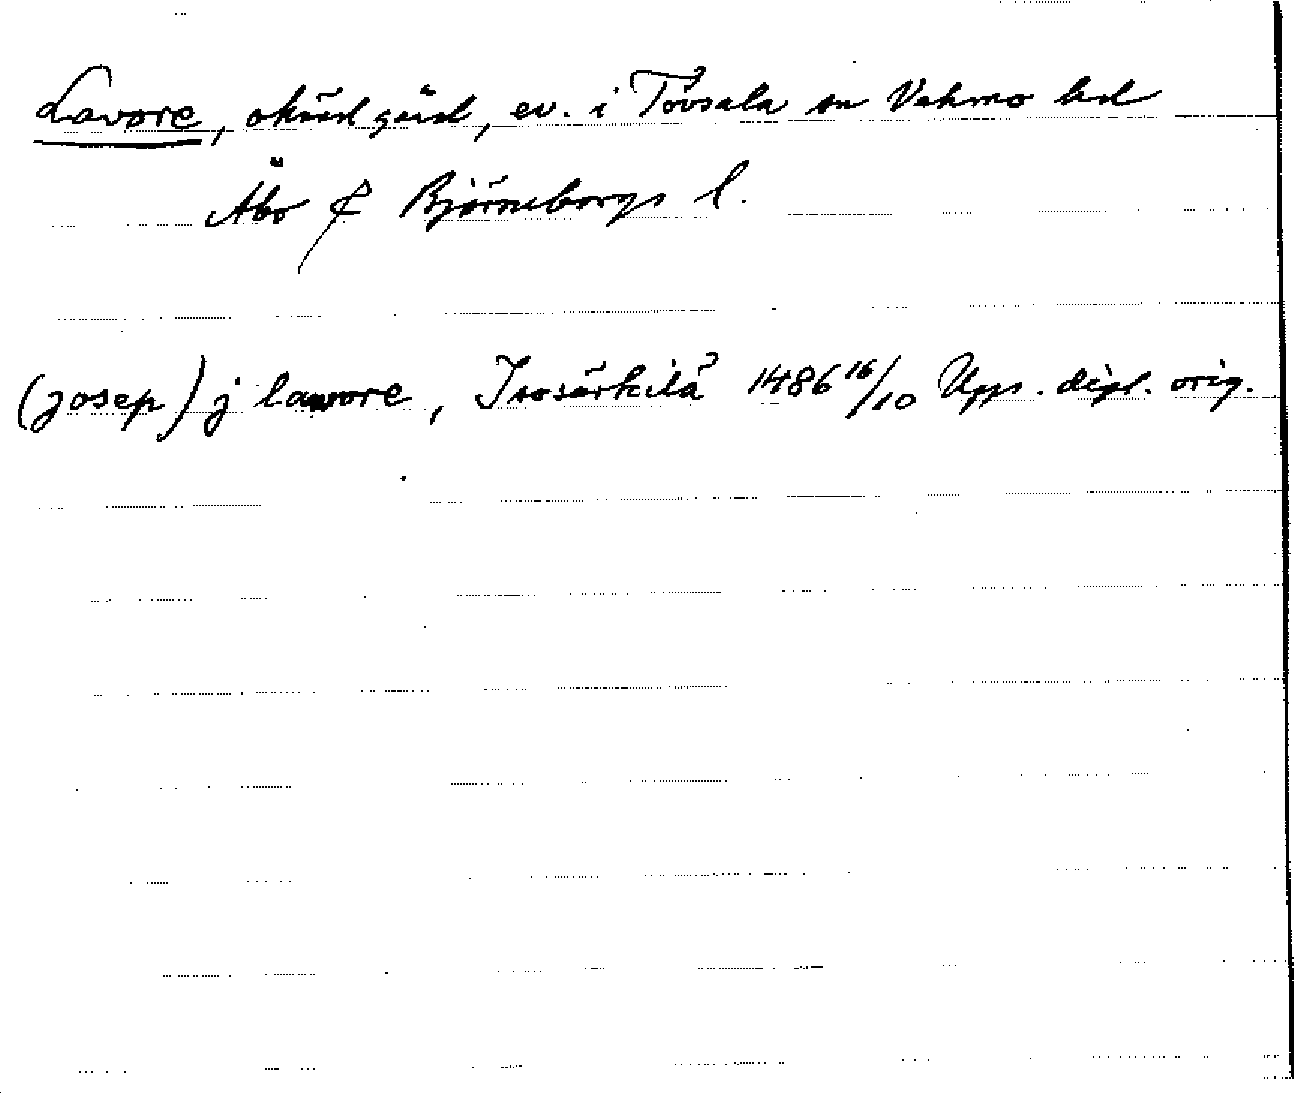 Lavore, okänd gård, ev. i Tövsala sn Vehmo hd
Åbo & Björneborgs l.
(josep) j lawore, Isosärkilä 1486 16/10 Upps. dipl. orig.